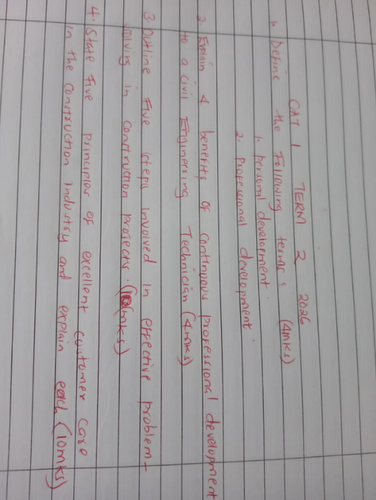 CAT 1 TERM 2 2026
1. Define the following terms (4mks)
1. Personal development
2. Professional development
2. Explain 4 benefits of continuous professional development
to a civil Engineering Technician (4mks)
3. Outline five steps involved in effective problem-
solving in construction projects. (10mks)
4. State five principles of excellent customer care
in the construction industry and explain each (10mks)